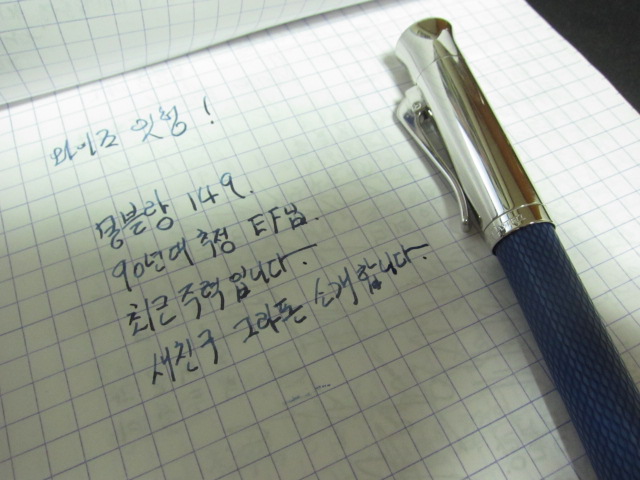 와이즈 잇형!
몽블랑 149.
90년대 추정 EF닙.
최근 주력입니다.
새친구 그라폰 소개합니다.